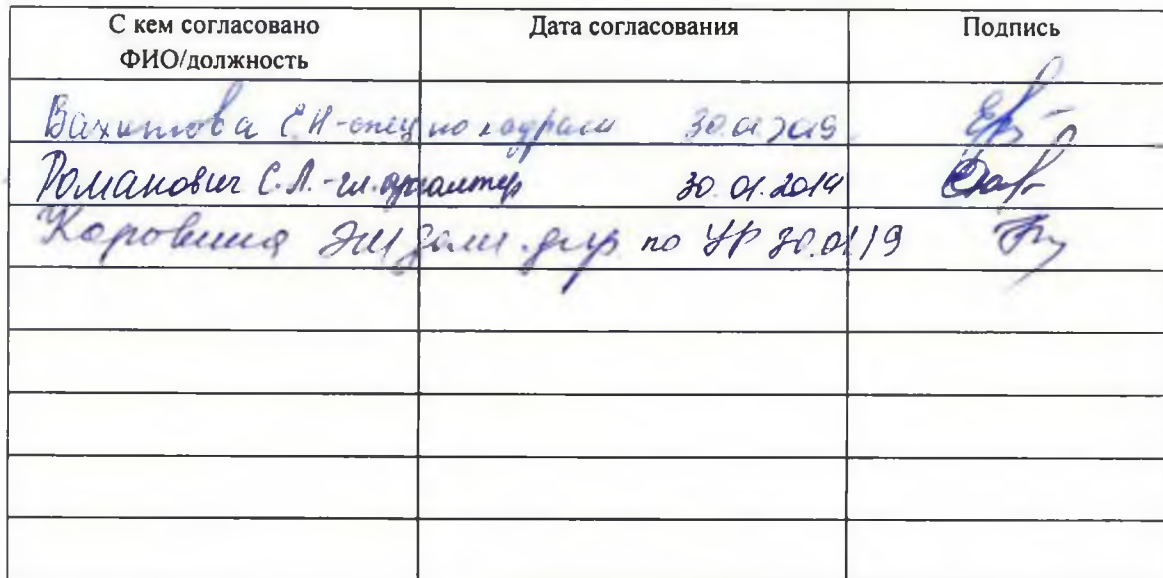 С кем согласовано Дата согласования Подпись
ФИО/должность
Вахитова Е.Н-спец по кадрам 30.01.2019
Романович С.Л.-гл.бухгалтер 30.01.2019
Коровина ЭИ зам.дир по УР 30.01.19